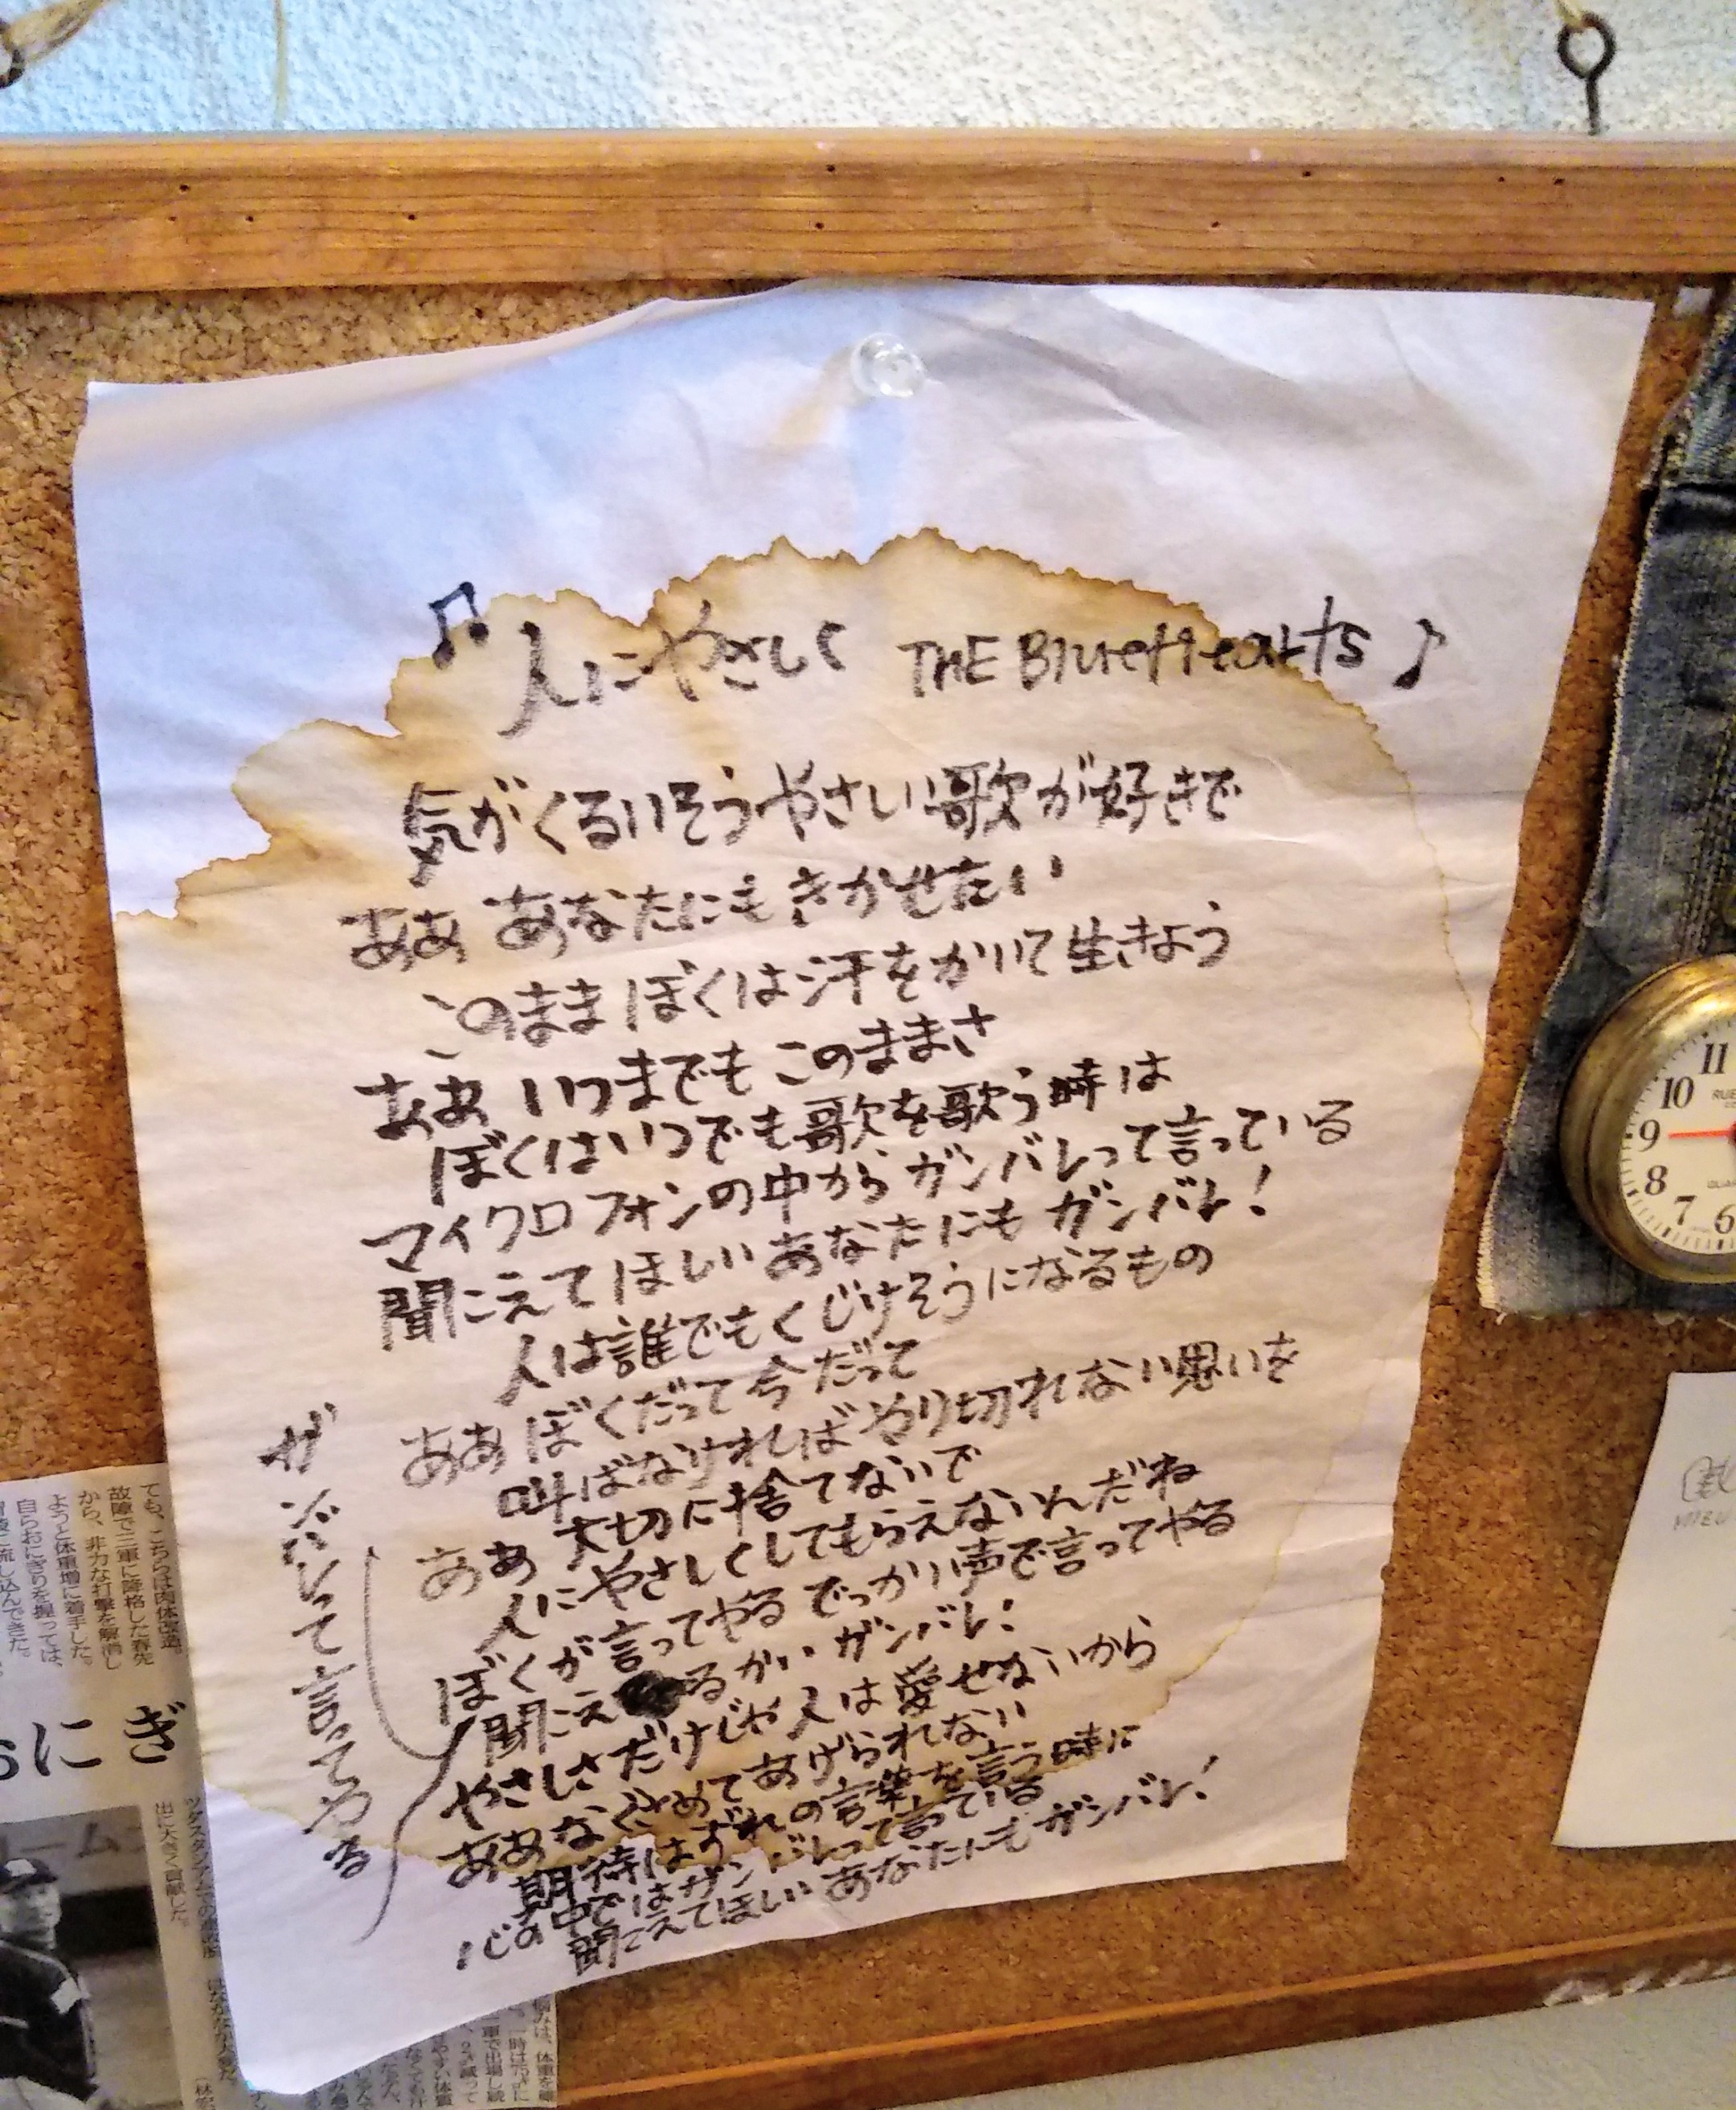 ♫ 人にやさしく THE BlueHearts ♪
気がくるいそうやさい歌が好きで
ああ あなたにもきかせたい
このままぼくは汗をかいて生きよう
ああ いつまでもこのままさ
ぼくはいつでも歌を歌う時は
マイクロフォンの中からガンバレって言っている
聞こえてほしいあなたにもガンバレ!
人は誰でもくじけそうになるもの
ああ ぼくだって今だって
叫ばなければやり切れない思いを
ああ 大切に捨てないで
人にやさしくしてもらえないんだね
ぼくが言ってやる でっかい声で言ってやる
ガンバレって言ってやる
聞こえるかい ガンバレ!
やさしさだけじゃ人は愛せないから
ああ なぐさめてあげられない
期待はずれの言葉を言う時に
心の中ではガンバレって言っている
聞こえてほしい あなたにもガンバレ!
おにぎ
ても、こちらは肉体改造。
故障で三軍に降格した春先
から、非力な打撃を解消し
ようと体重増に着手した。
自らおにぎりを握っては、
11
10
9
8
7
6